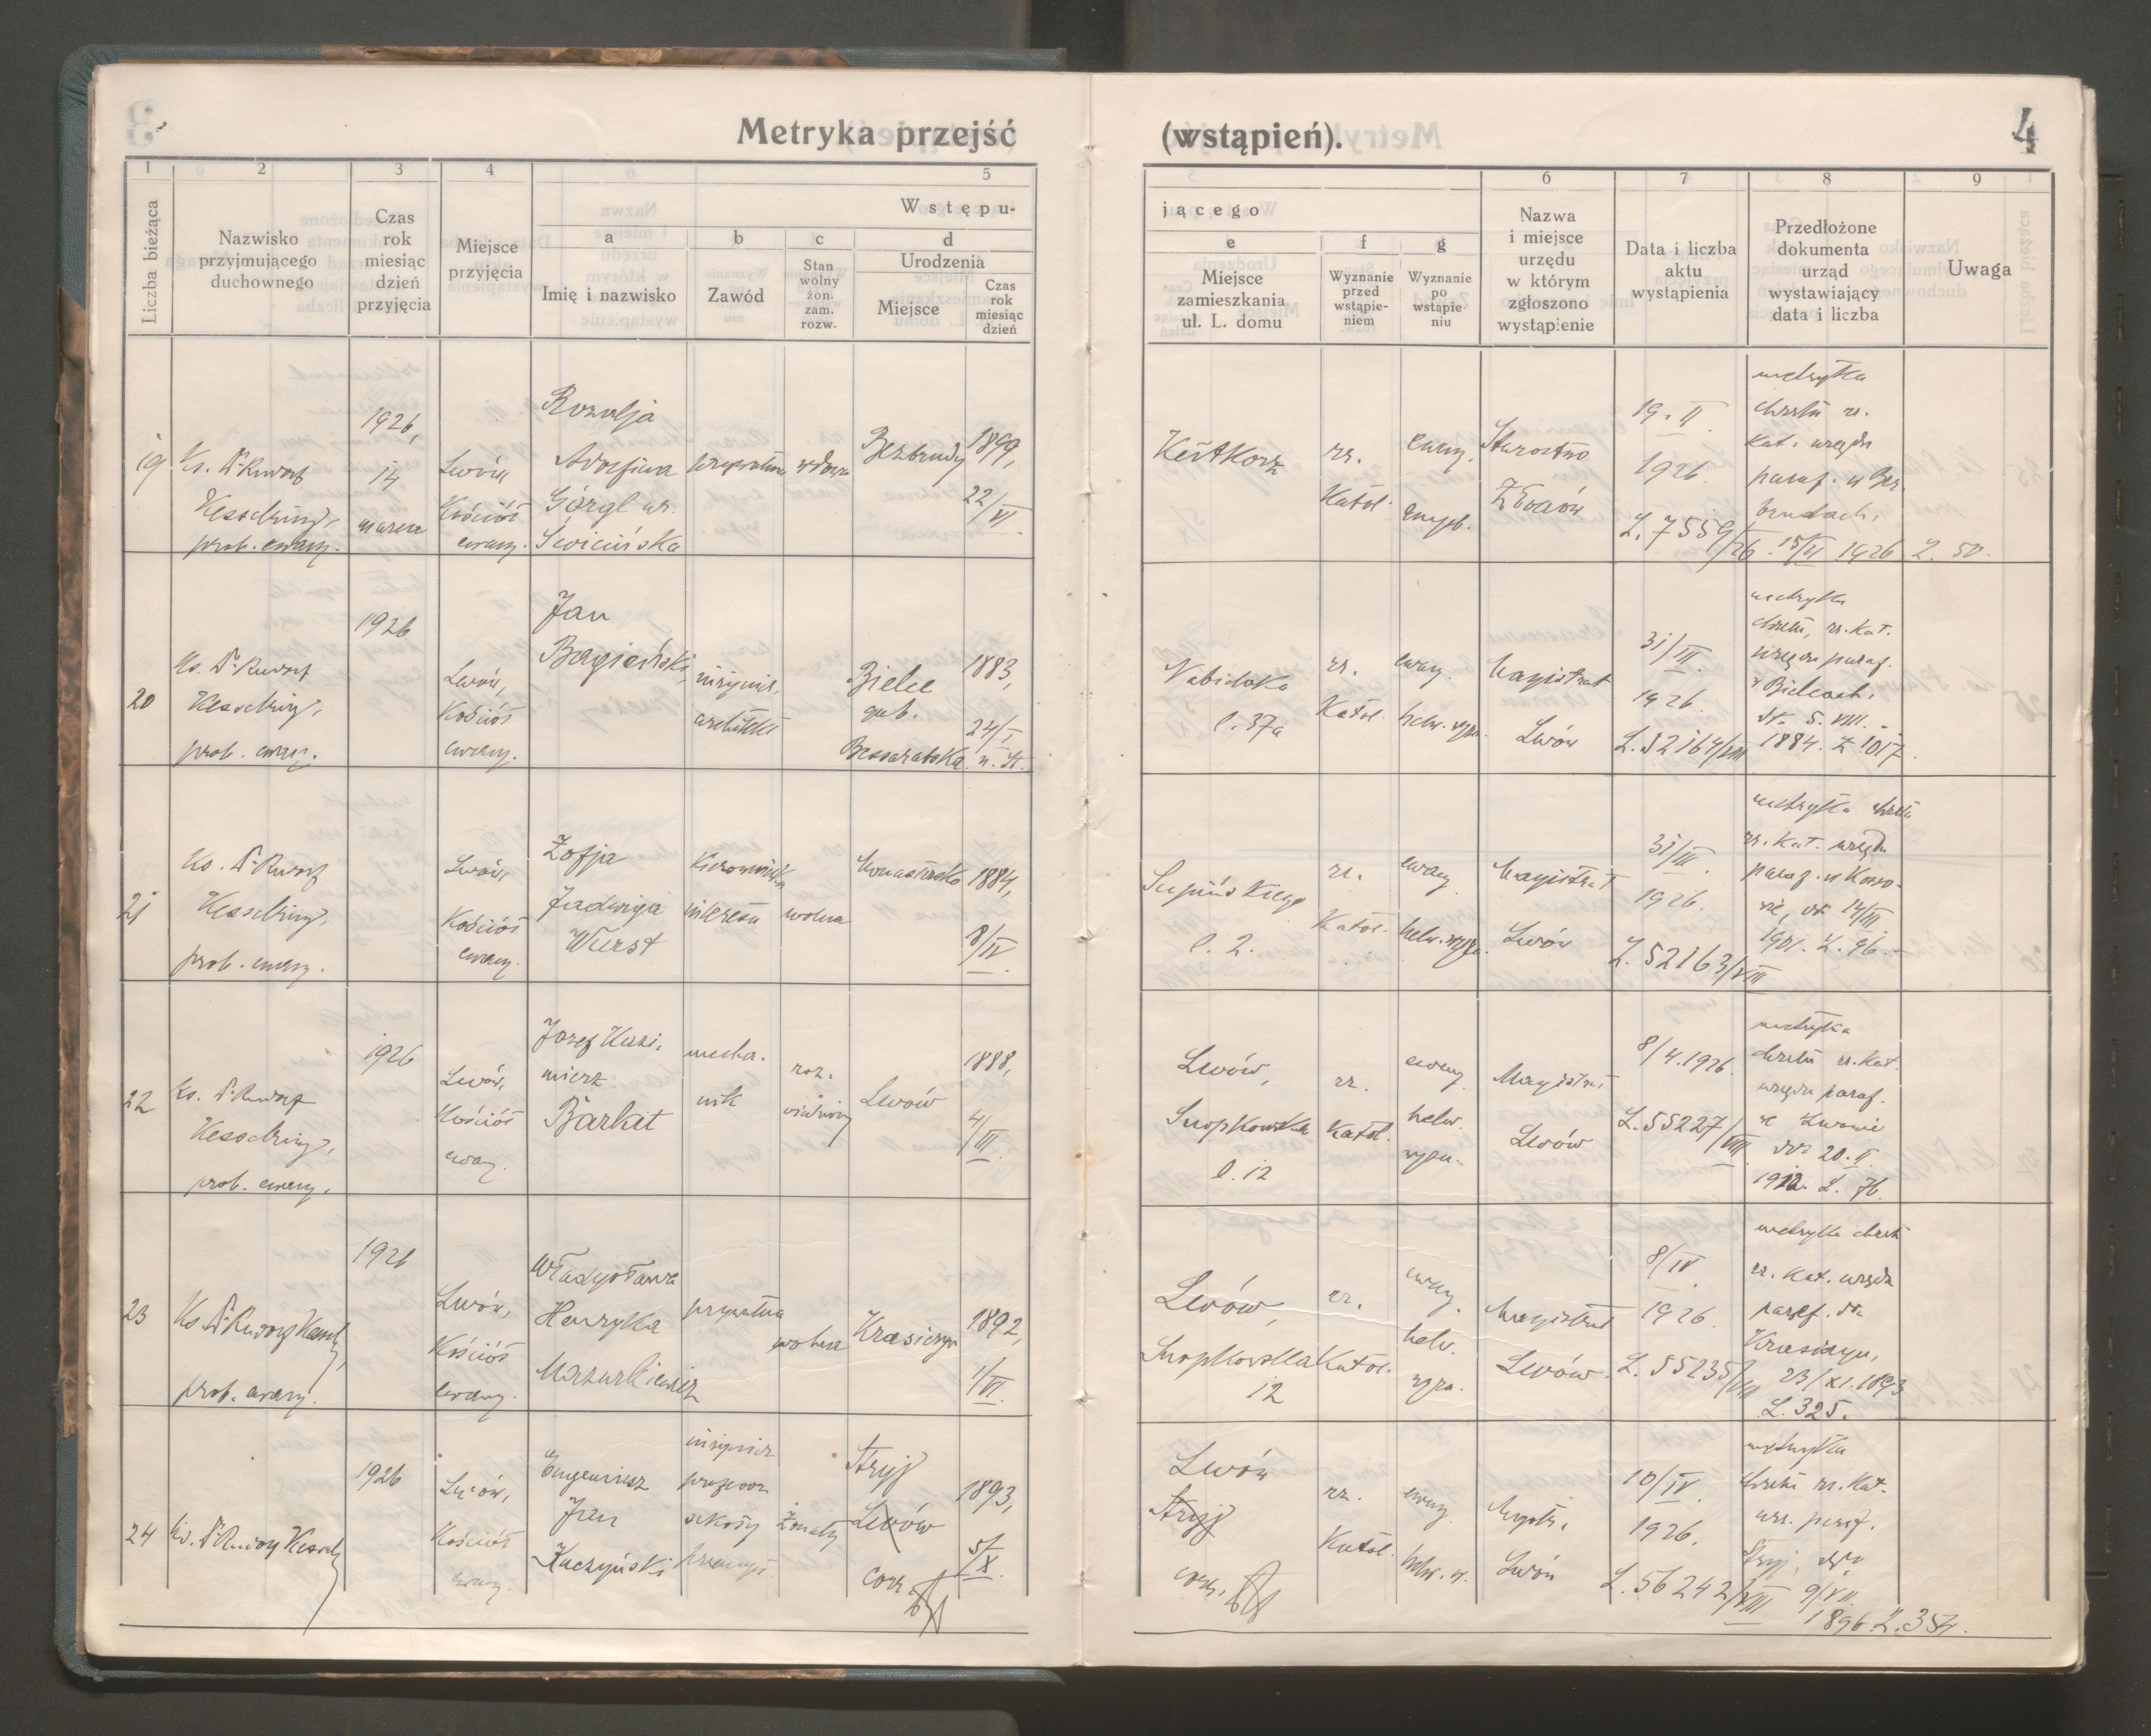 Metryka przejść
(wstąpień).
4
1
2
3
4
5
5
6
7
8
9
Liczba bieżąca
Nazwisko
przyjmującego
duchownego
Czas
rok
miesiąc
dzień
przyjęcia
Miejsce
przyjęcia
Wstępu-
jącego
a
Imię i nazwisko
b
Zawód
c
Stan
wolny
żon.
zam.
rozw.
d
Urodzenia
Miejsce
Czas
rok
miesiąc
dzień
e
Miejsce
zamieszkania
ul. L. domu
f
Wyznanie
przed
wstąpie-
niem
g
Wyznanie
po
wstąpie
niu
Nazwa
i miejsce
urzędu
w którym
zgłoszono
wystąpienie
Data i liczba
aktu
wystąpienia
Przedłożone
dokumenta
urząd
wystawiający
data i liczba
Uwaga
19
Ks. Dr Rudolf
Kesselring,
prob. ewang.
1926,
14
marca
Lwów
Kościół
ewang.
Rozalja
Adolfina
Görgl ur.
Świcińska
prywatna
wdowa
Bezbrudy
1899,
22/VI.
rz.
Katol.
ewang.
augsb.
Starostwo
Złoczów
19. II
1926.
L. 7559/26
metryka
chrztu rz.
Kat. urzędu
paraf. w Bez-
brudach,
15/II 1926 L. 50.
20
Ks. Dr Rudolf
Kesselring,
prob. ewang.
1926
Lwów,
Kościół
ewang.
Jan
Bagieński,
inżynier,
architekt
Bielce
gub.
Bessarabska
1883,
24/I.
n. st.
Nabielaka
l. 37a
rz.
Katol.
ewang.
helw. wyzn.
Magistrat
Lwów
31/III.
1926.
L. 52164/VIII
metryka
chrztu, rz. Kat.
urzędu paraf.
w Bielcach,
1884. L 1017.
21
Ks. Dr Rudolf
Kesselring,
prob. ewang.
Lwów,
Kościół
ewang.
Zofja
Jadwiga
Wurst
Kierowniczka
interesu
wolna
1884,
8/IV.
Supińskiego
l. 2.
rz.
Katol.
ewang.
helw. wyzn.
Magistrat
Lwów
31/III.
1926.
L. 52163/VIII
metryka chrztu
rz. Kat. urzędu
paraf. w Koso-
wie, dt 14/III
1901. L. 96.
22
Ks. Dr Rudolf
Kesselring,
prob. ewang.
1926
Lwów,
Kościół
ewang.
Józef Kazi-
mierz
Barkit
mecha-
nik
roz-
wiedziony
Lwów
1888,
4/III.
Lwów,
Snopkowska
l. 12
rz.
Katol.
ewang.
helw.
wyzn.
Magistrat
Lwów
8/4. 1926.
L. 55227/VIII
metryka
chrztu rz. Kat.
urzędu paraf.
we Lwowie
dt. 20. II.
1912. L. 76.
23
Ks. Dr Rudolf Kesselring,
prob. ewang.
1926
Lwów,
Kościół
ewang.
Władysława
Henryka
Mazurkiewicz
prywatna
wolna
Krasiczyn
1892,
1/VI.
Lwów,
Snopkowska
12
rz.
Katol.
ewang.
helw.
wyzn.
Magistrat
Lwów.
8/IV.
1926.
L. 55235/VIII
metryka chrztu
rz. Kat. urzędu
paraf. dt.
Krasiczyn,
23/XI. 1893
L. 325.
24
Ks. Dr Rudolf Kesselring
1926
Lwów,
Kościół
ewang.
Eugeniusz
Jan
Kuczyński
inżynier
profesor
szkoły
przemysł.
żonaty
Stryj
Lwów
corr.
1893,
5/X.
Lwów
Stryj
corr.
rz.
Katol.
ewang.
helw. w.
Magistr.
Lwów
10/IV.
1926.
L. 56242/VIII
metryka
chrztu rz. Kat.
urz. paraf.
Stryj,
9/VII.
1896 L. 354.